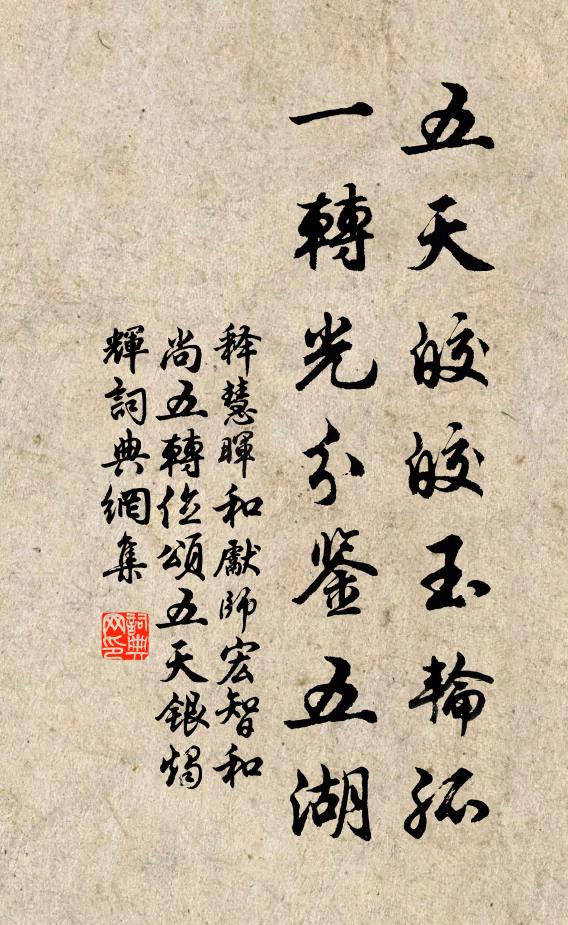 五天皎皎玉輪孤
一轉光分鉴五湖
释慧暉和獻師宏智和
尚五轉位頌五天銀燭
輝詞典網集
詞典网印